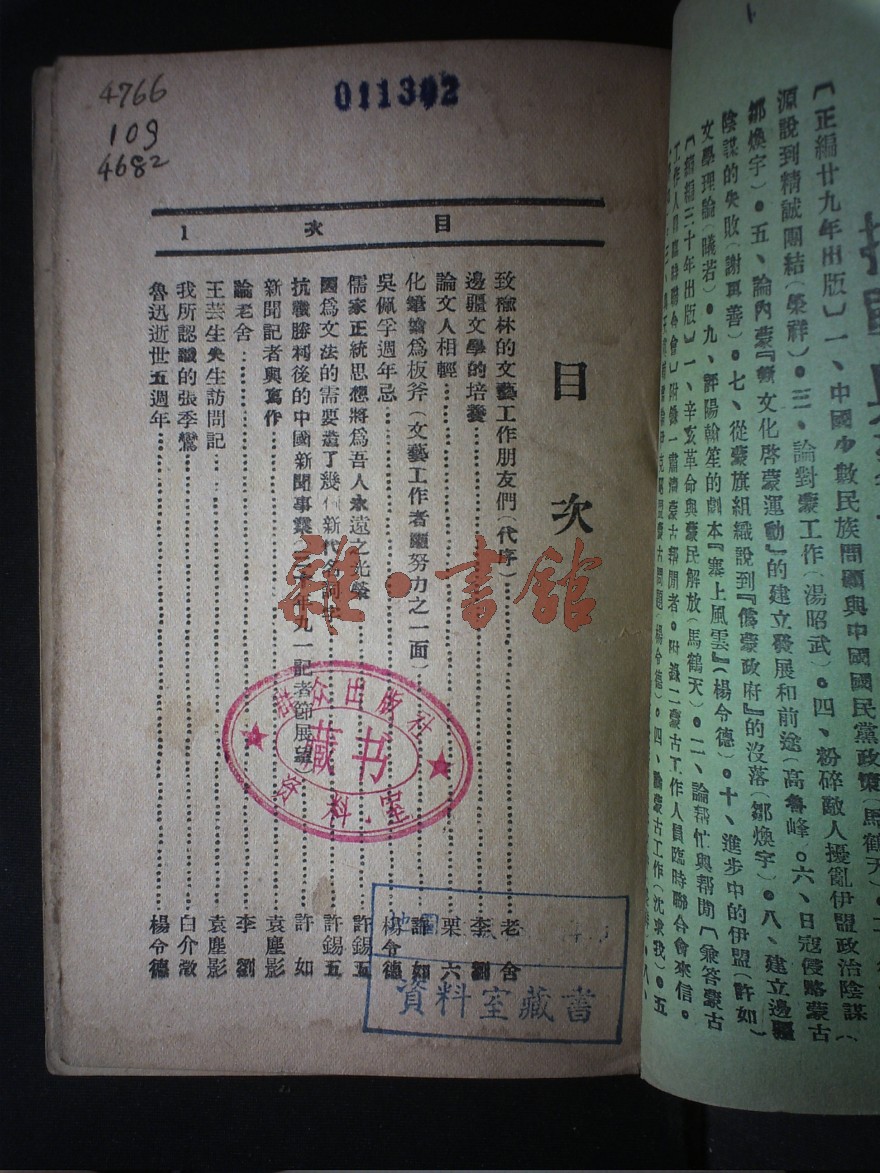 4766
109
4682
011302
目次 1
目次
致榆林的文藝工作朋友們(代序)老舍
邊疆文學的培養 李劉
論文人相輕 栗六
化筆墨為板斧(文藝工作者應努力之一面) 許如
吳佩孚週年忌 楊令德
儒家正統思想將為吾人永遠之光榮 許錫五
國為文法的需要造了幾個新代名詞字 許錫五
抗戰勝利後的中國新聞事業(三十年九一記者節展望) 許如
新聞記者與寫作 袁塵影
論老舍 李劉
王芸生先生訪問記 袁塵影
我所認識的張季鸞 白介澂
魯迅逝世五週年 楊令德
雜·書館
出版社
藏书
资料室
資料室藏書
〔正編廿九年出版〕一、中國少數民族問題與中國國民黨政策(馬鶴天)
源說到精誠團結(榮祥)。三、論對蒙工作(湯昭武)。四、粉碎敵人擾亂伊盟政治陰謀(
鄒煥宇)。五、論內蒙『新文化啓蒙運動』的建立發展和前途(高魯峰。六、日寇侵略蒙古
陰謀的失敗(謝再善)。七、從蒙旗組織說到『偽蒙政府』的沒落(鄒煥宇)。八、建立邊疆
文學理論(曦若)。九、評陽翰笙的劇本『塞上風雲』(楊令德)。十、進步中的伊盟(許如)
〔續編三十年出版〕一、辛亥革命與蒙民解放(馬鶴天)。二、論幫忙與幫閒〔兼答蒙古
工作人員臨時聯合會〕附錄一肅清蒙古幫閒者。附錄二蒙古工作人員臨時聯合會來信。
蒙古問題(楊令德)。四、論蒙古工作(沈求我)。五